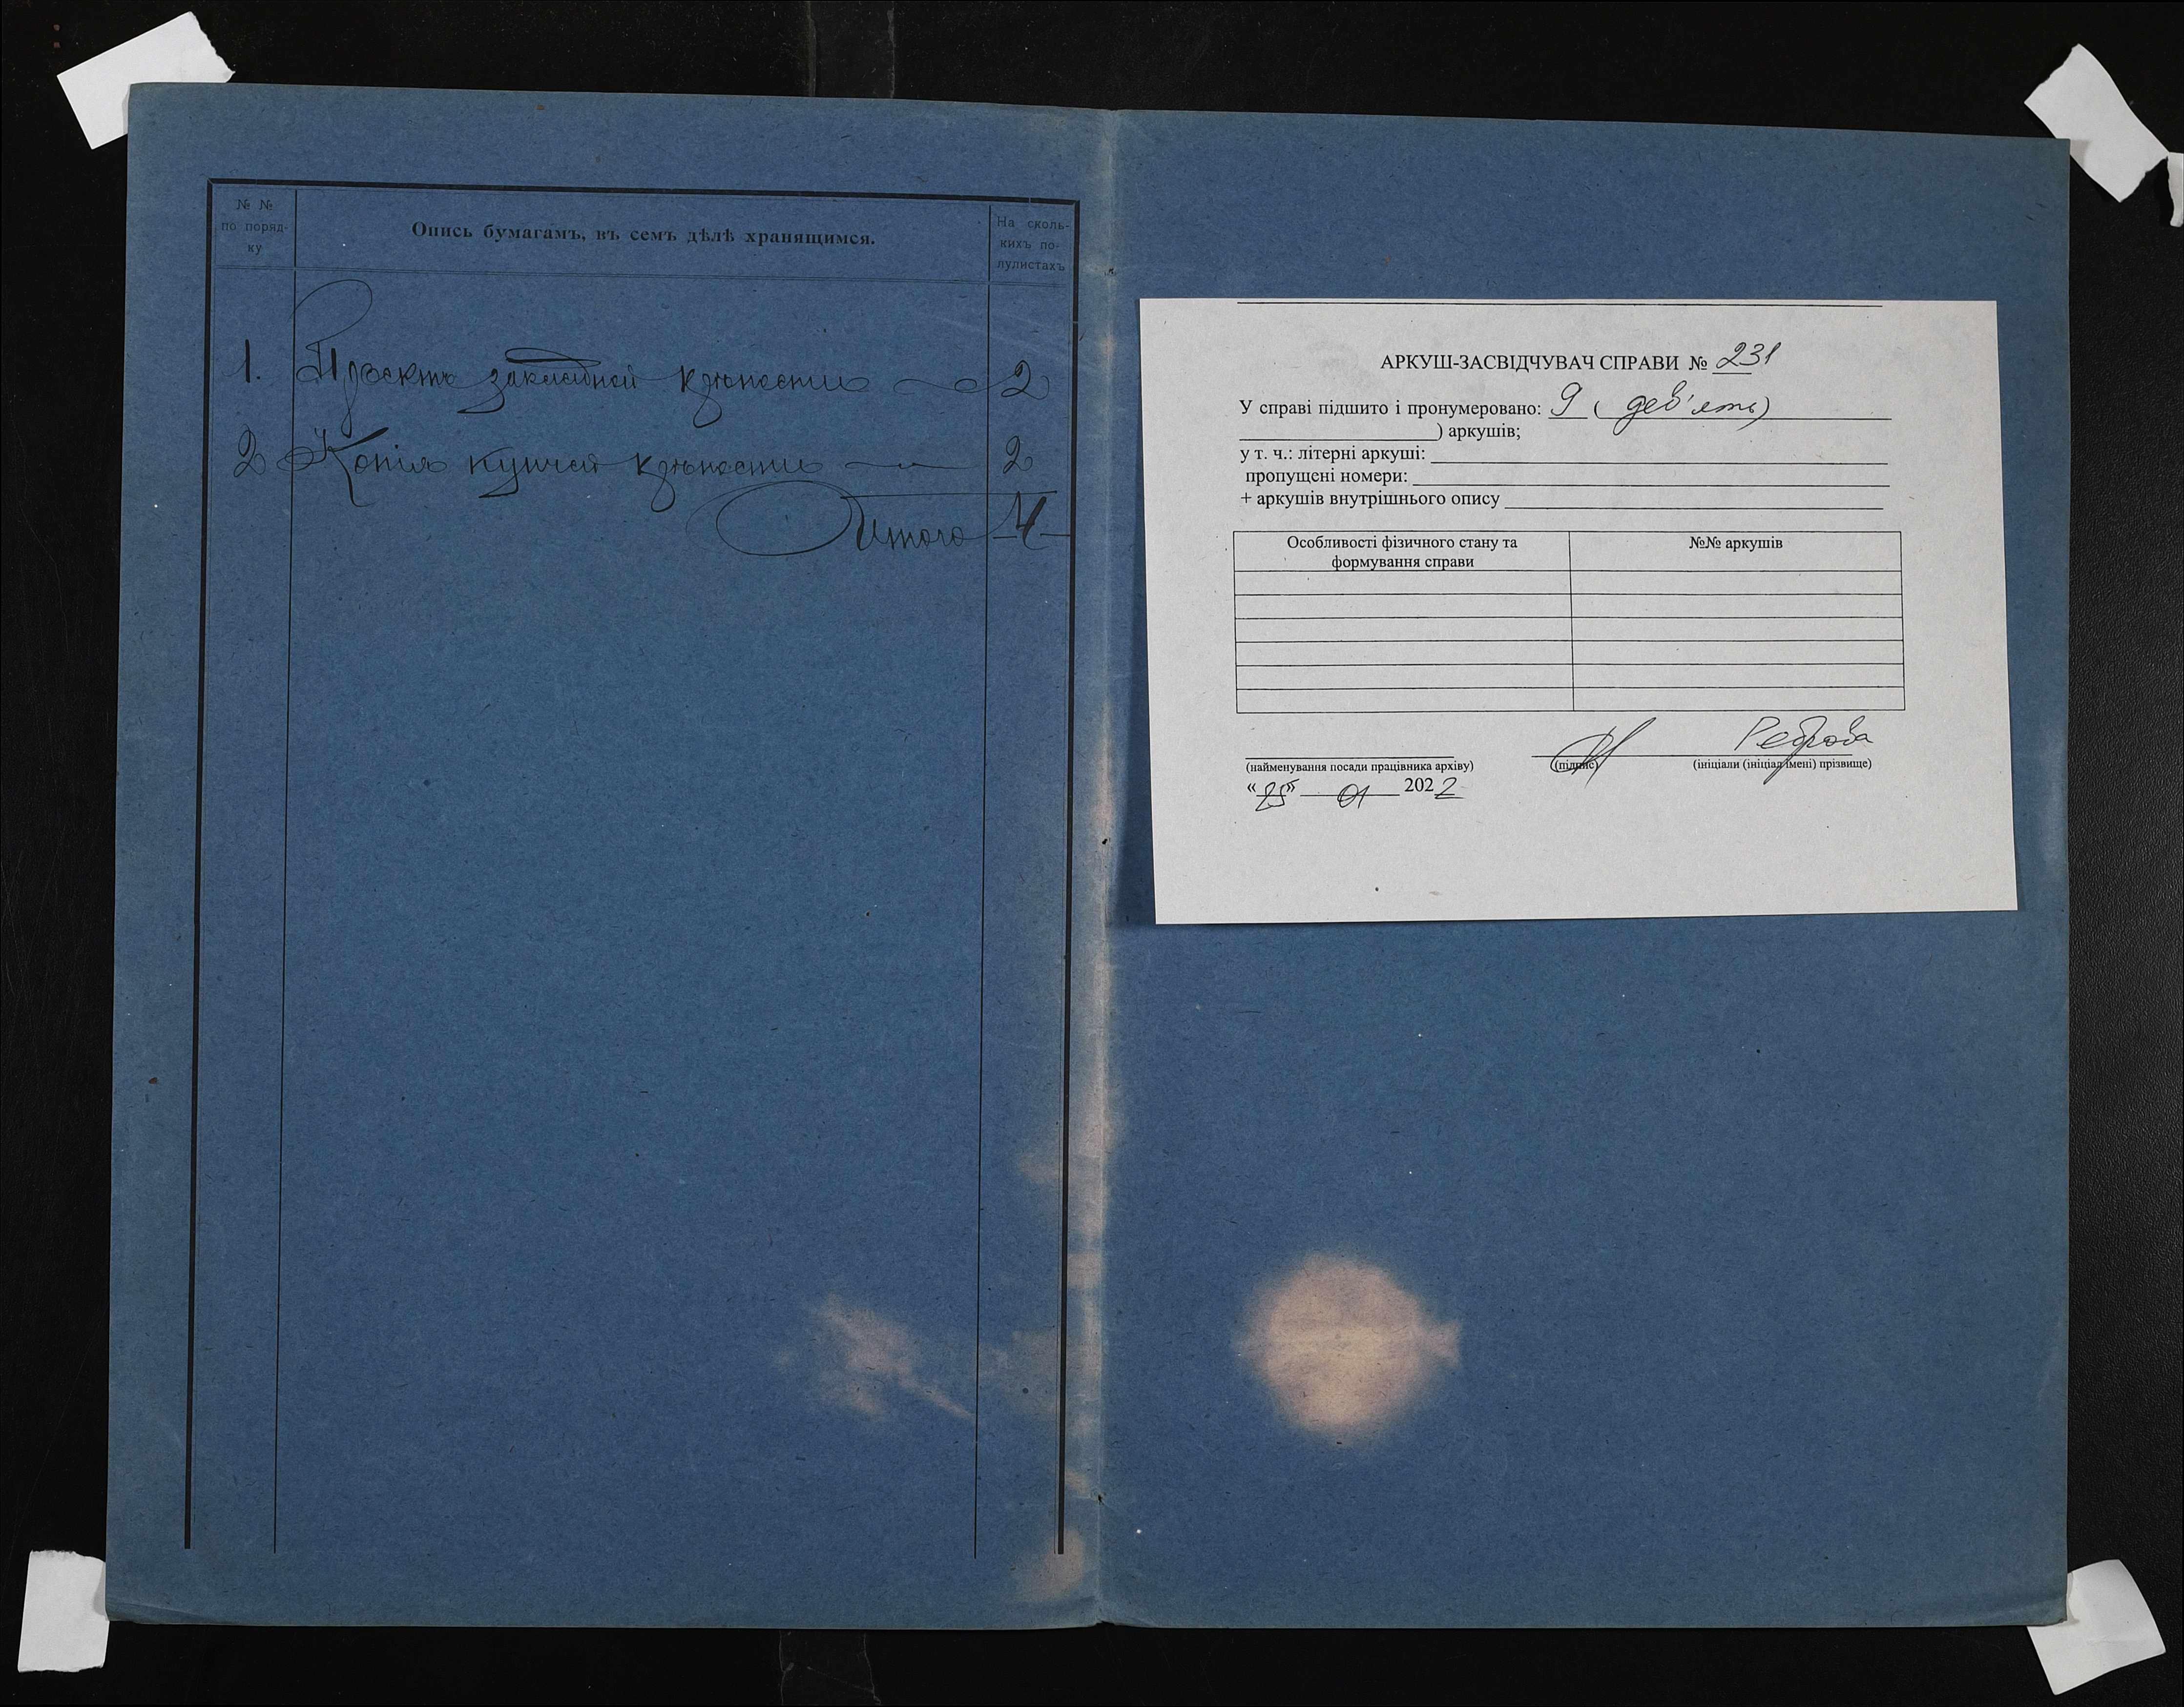 № №
по поряд-
ку
Опись бумагамъ, въ семъ дѣлѣ хранящимся.
На сколь-
кихъ по-
лулистахъ
1. Проектъ закладной крѣпости 2
2 Копія купчей крѣпости 2
Итого 4
АРКУШ-ЗАСВІДЧУВАЧ СПРАВИ № 231
У справі підшито і пронумеровано: 9 ( дев'ять)
) аркушів;
у т. ч.: літерні аркуші:
пропущені номери:
+ аркушів внутрішнього опису
Особливості фізичного стану та
формування справи
№№ аркушів
Реброва
(найменування посади працівника архіву) (підпис) (ініціали (ініціал імені) прізвище)
“25” 01 2022